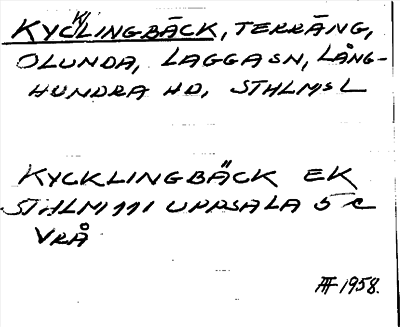 KYCKLINGBÄCK, TERRÄNG,
OLUNDA, LAGGA SN, LÅNG-
HUNDRA HD, STHLMS L
KYCKLINGBÄCK EK
STHLM 111 UPPSALA 5 C
VRÅ
1958.